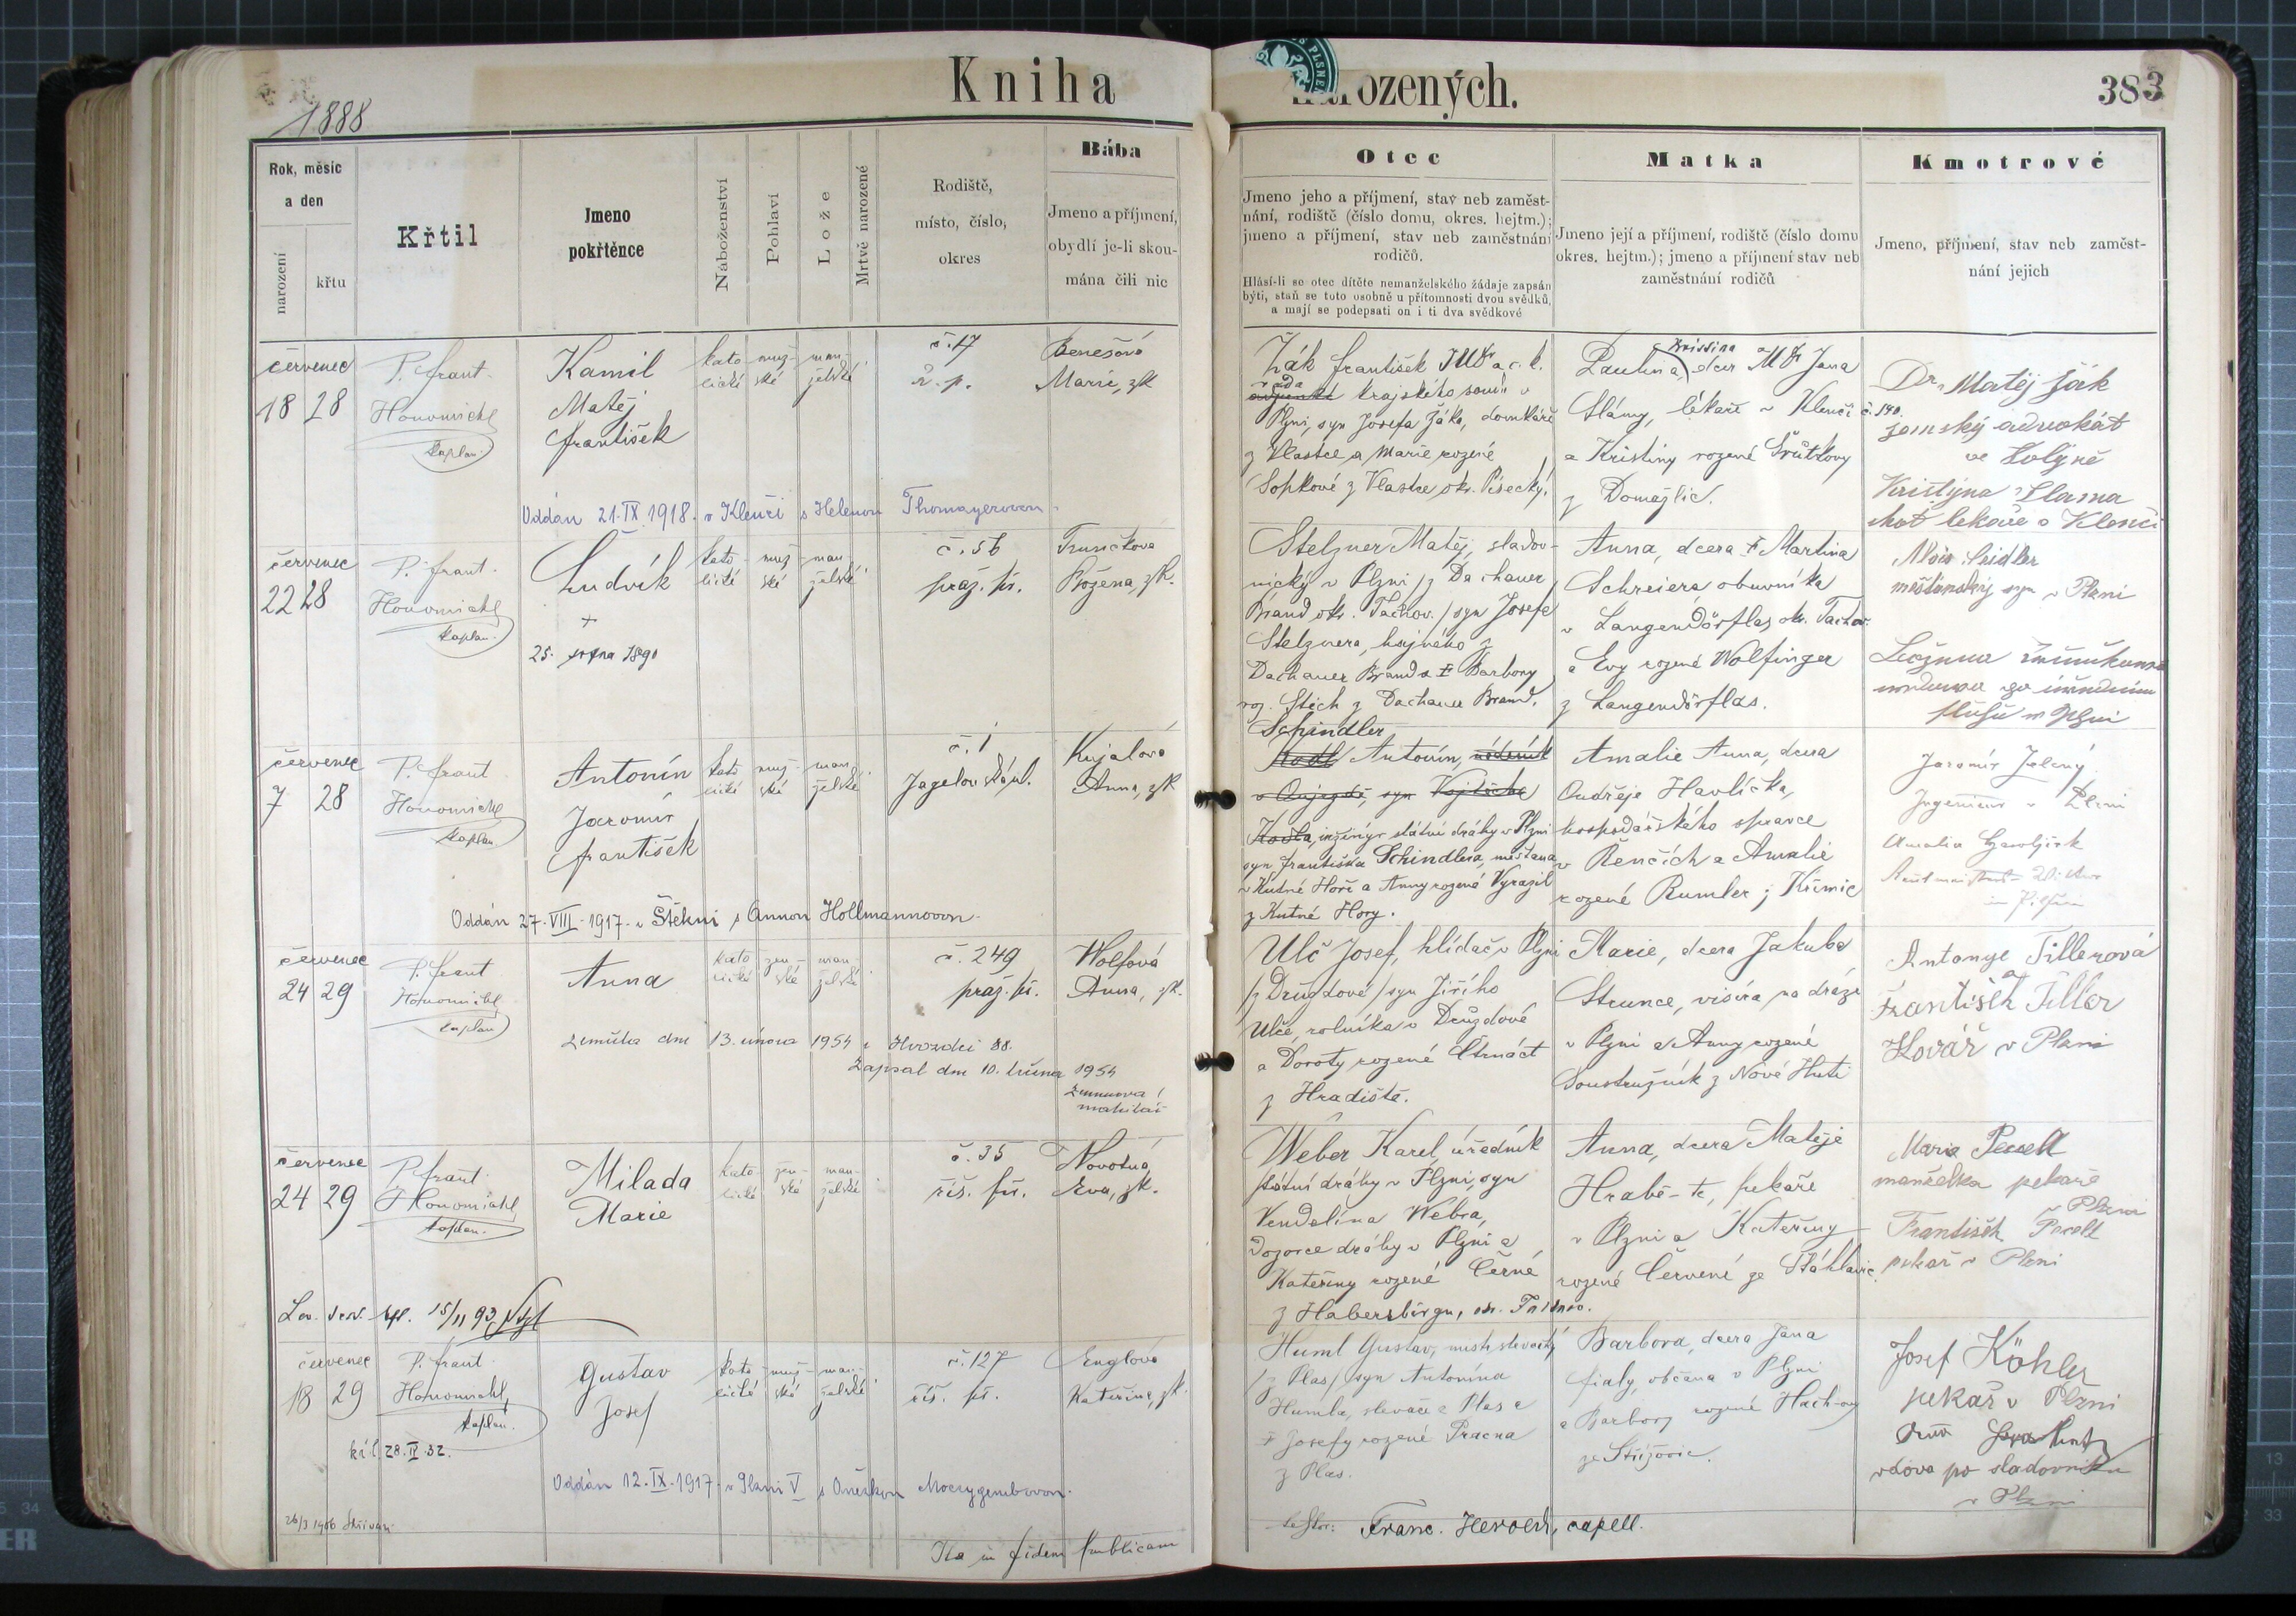 Kniha
narozených.
383
1888
Rok, měsíc
a den
narození
křtu
Křtil
Jmeno
pokřtěnce
Náboženství
Pohlaví
Lože
Mrtvě narozené
Rodiště,
místo, číslo,
okres
Bába
Jmeno a příjmení,
obydlí je-li skou-
mána čili nic
Otec
Jmeno jeho a příjmení, stav neb zaměst-
nání, rodiště (číslo domu, okres. hejtm.);
jmeno a příjmení, stav neb zaměstnání
rodičů.
Hlásí-li se otec dítěte nemanželského žádaje zapsán
býti, staň se toto osobně u přítomnosti dvou svědků,
a mají se podepsati on i ti dva svědkové
Matka
Jmeno její a příjmení, rodiště (číslo domu
okres. hejtm.); jmeno a příjmení stav neb
zaměstnání rodičů
Kmotrové
Jmeno, příjmení, stav neb zaměst-
nání jejich
červenec
18 28
P. Frant.
Honomichl
kaplan
Kamil
Matěj
František
kato-
lické
muž-
ské
man-
želské
č. 17
ř. p.
Benešová
Marie, zk
Žák František JUDr a c. k.
krajského soudu v
Plzni, syn Josefa Žáka, domkáře
z Vlastce a Marie rozené
Sopkové z Vlastce okr. Písecký.
Paulina, dcera MDr Jana
Slámy, lékaře v Klenčí č. 140.
a Kristiny rozené
z Domažlic.
Dr. Matěj Žák
zemský advokát
ve Volyně
Kristýna Slama
choť lékaře v Klenčí
Oddán 21. IX. 1918. v Klenčí s Helenou Thomayerovou
červenec
22 28
P. Frant.
Honomichl
kaplan
Ludvík
+
25. srpna 1890
kato-
lické
muž-
ské
man-
želské
č. 56
praž. př.
Božena, zk.
Stelzner Matěj, sladov-
nický v Plzni /z Dachauer
Brand okr. Tachov./ syn Josefa
Stelznera, hajného z
Dachauer Brand a + Barbory
roz. Stich z Dachauer Brand.
Anna, dcera + Martina
Schreiera obuvníka
v Langendörflas, okr. Tachov.
a Evy rozené Wolfinger
z Langendörflas.
Alois Seidler
měšťanský syn v Plzni
červenec
7 28
P. Frant
Honomichl
kaplan
Antonín
Jaromír
František
kato-
lické
muž-
ské
man-
želské
č. 1
Kujalová
Anna, zk
Schindler
Antonín,
inženýr státní dráhy v Plzni
syn Františka Schindlera, měšťana
v Kutné Hoře a Anny rozené Vyrazil
z Kutné Hory.
Amalie Anna, dcera
Ondřeje Havlíčka,
hospodářského správce
v Řenčích a Amalie
rozené Rumler z Křimic
Jaromír Zelený
v Plzni
Oddán 27. VIII. 1917. v Štěkni s Annou Hollmannovou.
červenec
24 29
P. Frant
Honomichl
kaplan
Anna
kato-
lické
žen-
ské
man-
želské
č. 249
praž. př.
Wolfová
Anna, zk.
Ulč Josef, hlídač v Plzni
/z Druzdové/ syn Jiřího
Ulče, rolníka v Druzdové
a Doroty rozené Čtrnáct
z Hradiště.
Marie, dcera Jakuba
Strunce, na dráze
v Plzni a Anny rozené
Soustružník z Nové Huti
Antonye Tillerová
a
František Tiller
Kovář v Plzni
Zemřela dne 13. února 1954 v Hvozdci 88.
Zapsal dne 10. 1954
červenec
24 29
P. Frant.
Honomichl
kaplan.
Milada
Marie
kato-
lické
žen-
ské
man-
želské
č. 35
říš. př.
Novotná
Eva, zk.
Weber Karel, úředník
státní dráhy v Plzni, syn
Vendelína Webra,
dozorce dráhy v Plzni a
Kateřiny rozené Černé
z Habersbirgu, okr. Falknov.
Anna, dcera Matěje
Hraběte, pekaře
v Plzni a Kateřiny
rozené Červené ze Šťáhlavic.
Marie Pecelt
manželka pekaře
v Plzni
František Pecelt
pekař v Plzni
15/11 93
červenec
18 29
P. Frant.
Honomichl,
kaplan.
Gustav
Josef
kato-
lické
muž-
ské
man-
želské
č. 127
říš. př.
Englová
Kateřina, zk.
Huml Gustav,
/z Plas/ syn Antonína
Humla, slevače z Plas a
+ Josefy rozené Pracna
z Plas.
Barbora, dcera Jana
Fialy, občana v Plzni
a Barbory rozené
ze Střížovic.
Josef Köhler
pekař v Plzni
vdova po sladovníku
v Plzni
28. IV. 32.
Oddán 12. IX. 1917. v Plzni V s Anežkou Moczygembovou.
26/3 1906
Ita in fidem publicam
testor: Franc. Herold, capell.